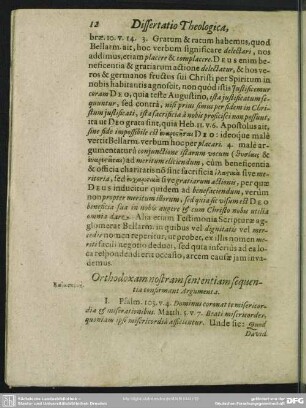 12 Dissertatio Theologica,
bræ. 10. v. 14. 3. Gratum & ratum habemus, quod
Bellarm. ait, hoc verbum significare delectari, nos
addimus, etiam placere & complacere. DEUS enim be-
neficentia & gratiarum actione delectatur, & hos ve-
ros & germanos fructus sui Christi per Spiritum in
nobis habitantis agnoscit, non quod istis Justificemur
coram DEO, quia teste Augustino, ista justificatum se-
quuntur, sed contrà, nisi prius simus per fidem in Chri-
stum justificati, ista sacrificia à nobis proficisci non possunt,
ita ut DEO grata sint, quia Heb. 11. v. 6. Apostolus ait,
sine fide impossibile est DEO: ideoque malè
vertit Bellarm. verbum hoc per placari. 4. malè ar-
gumentatur à conjunctione istarum vocum
ad meritum eliciendum, cùm beneficentia
& officia charitatis nô sint sacrificia sive me-
ritoria, sed sive gratiarum actionis, per quæ
DEUS inducitur quidem ad benefaciendum, verùm
non propter meritum illorum, sed quia sic visum est DEO
beneficia sua in nobis augere & cum Christo nobis utilia
omnia dare. Alia etiam Testimonia Scripturæ ag-
glomerat Bellarm. in quibus vel dignitatis vel mer-
cedis nomen reperitur, ut probet, ex illis nomen me-
riti facili negotio deduci, sed quia inferiùs ad ea lo-
ca respondendi erit occasio, arcem causæ jam inva-
demus.
Orthodoxam nostram sententiam sequen-
tia confirmant Argumenta.
I. Psalm. 103. v. 4. Dominus coronat te misericor-
dia & miserationibus. Matth. 5. v. 7. Beati misericordes,
quoniam ipsi misericordiâ afficientur. Unde sic: Quod
David